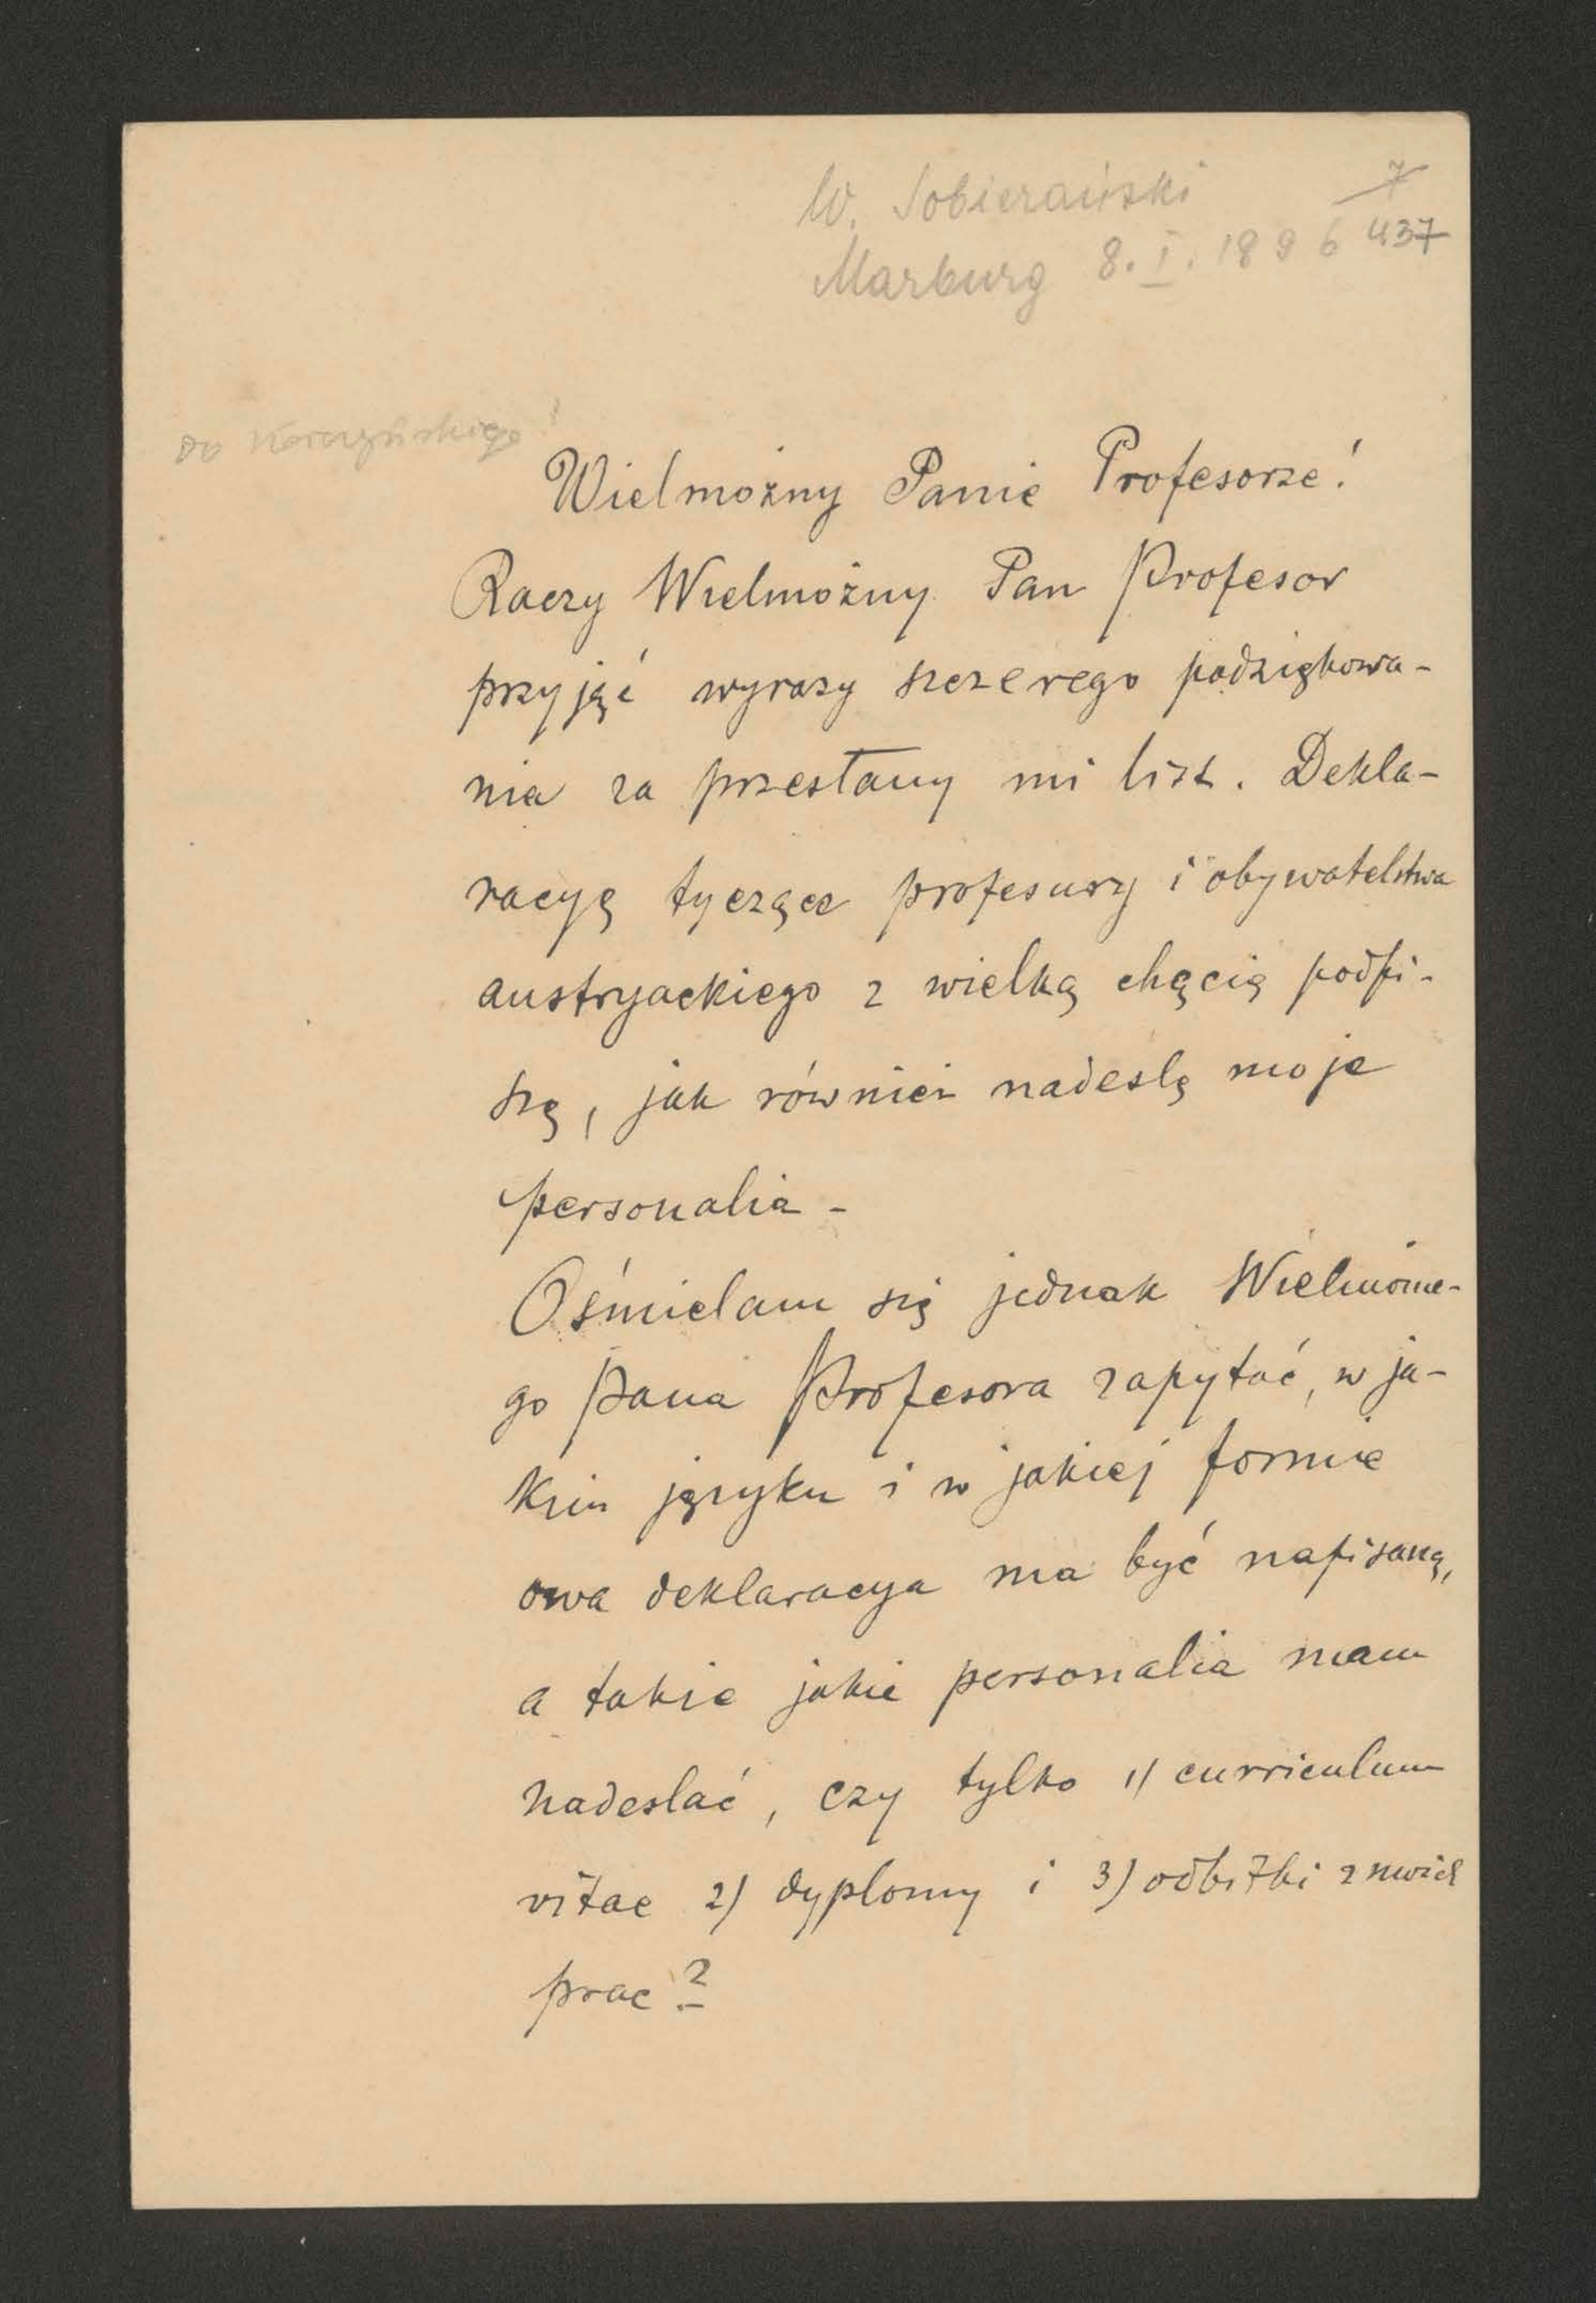 W. Sobierański
7
Marburg 8. I. 1896 437
Do Korczyńskiego!
Wielmożny Panie Profesorze!
Raczy Wielmożny Pan Profesor
przyjąć wyrazy szczerego podziękowa-
nia za przesłany mi list. Dekla-
racyę tyczące profesury i obywatelstwa
austryackiego z wielką chęcią podpi-
szę, jak również nadeslę moje
personalia -
Ośmielam się jednak Wielmożne-
go Pana Profesora zapytać, w ja-
kim języku i w jakiej formie
owa deklaracya ma być napisaną,
a także jakie personalia mam
nadeslać, czy tylko 1) curriculum
vitae 2) dyplomy i 3) odbitki z mvich
prac?